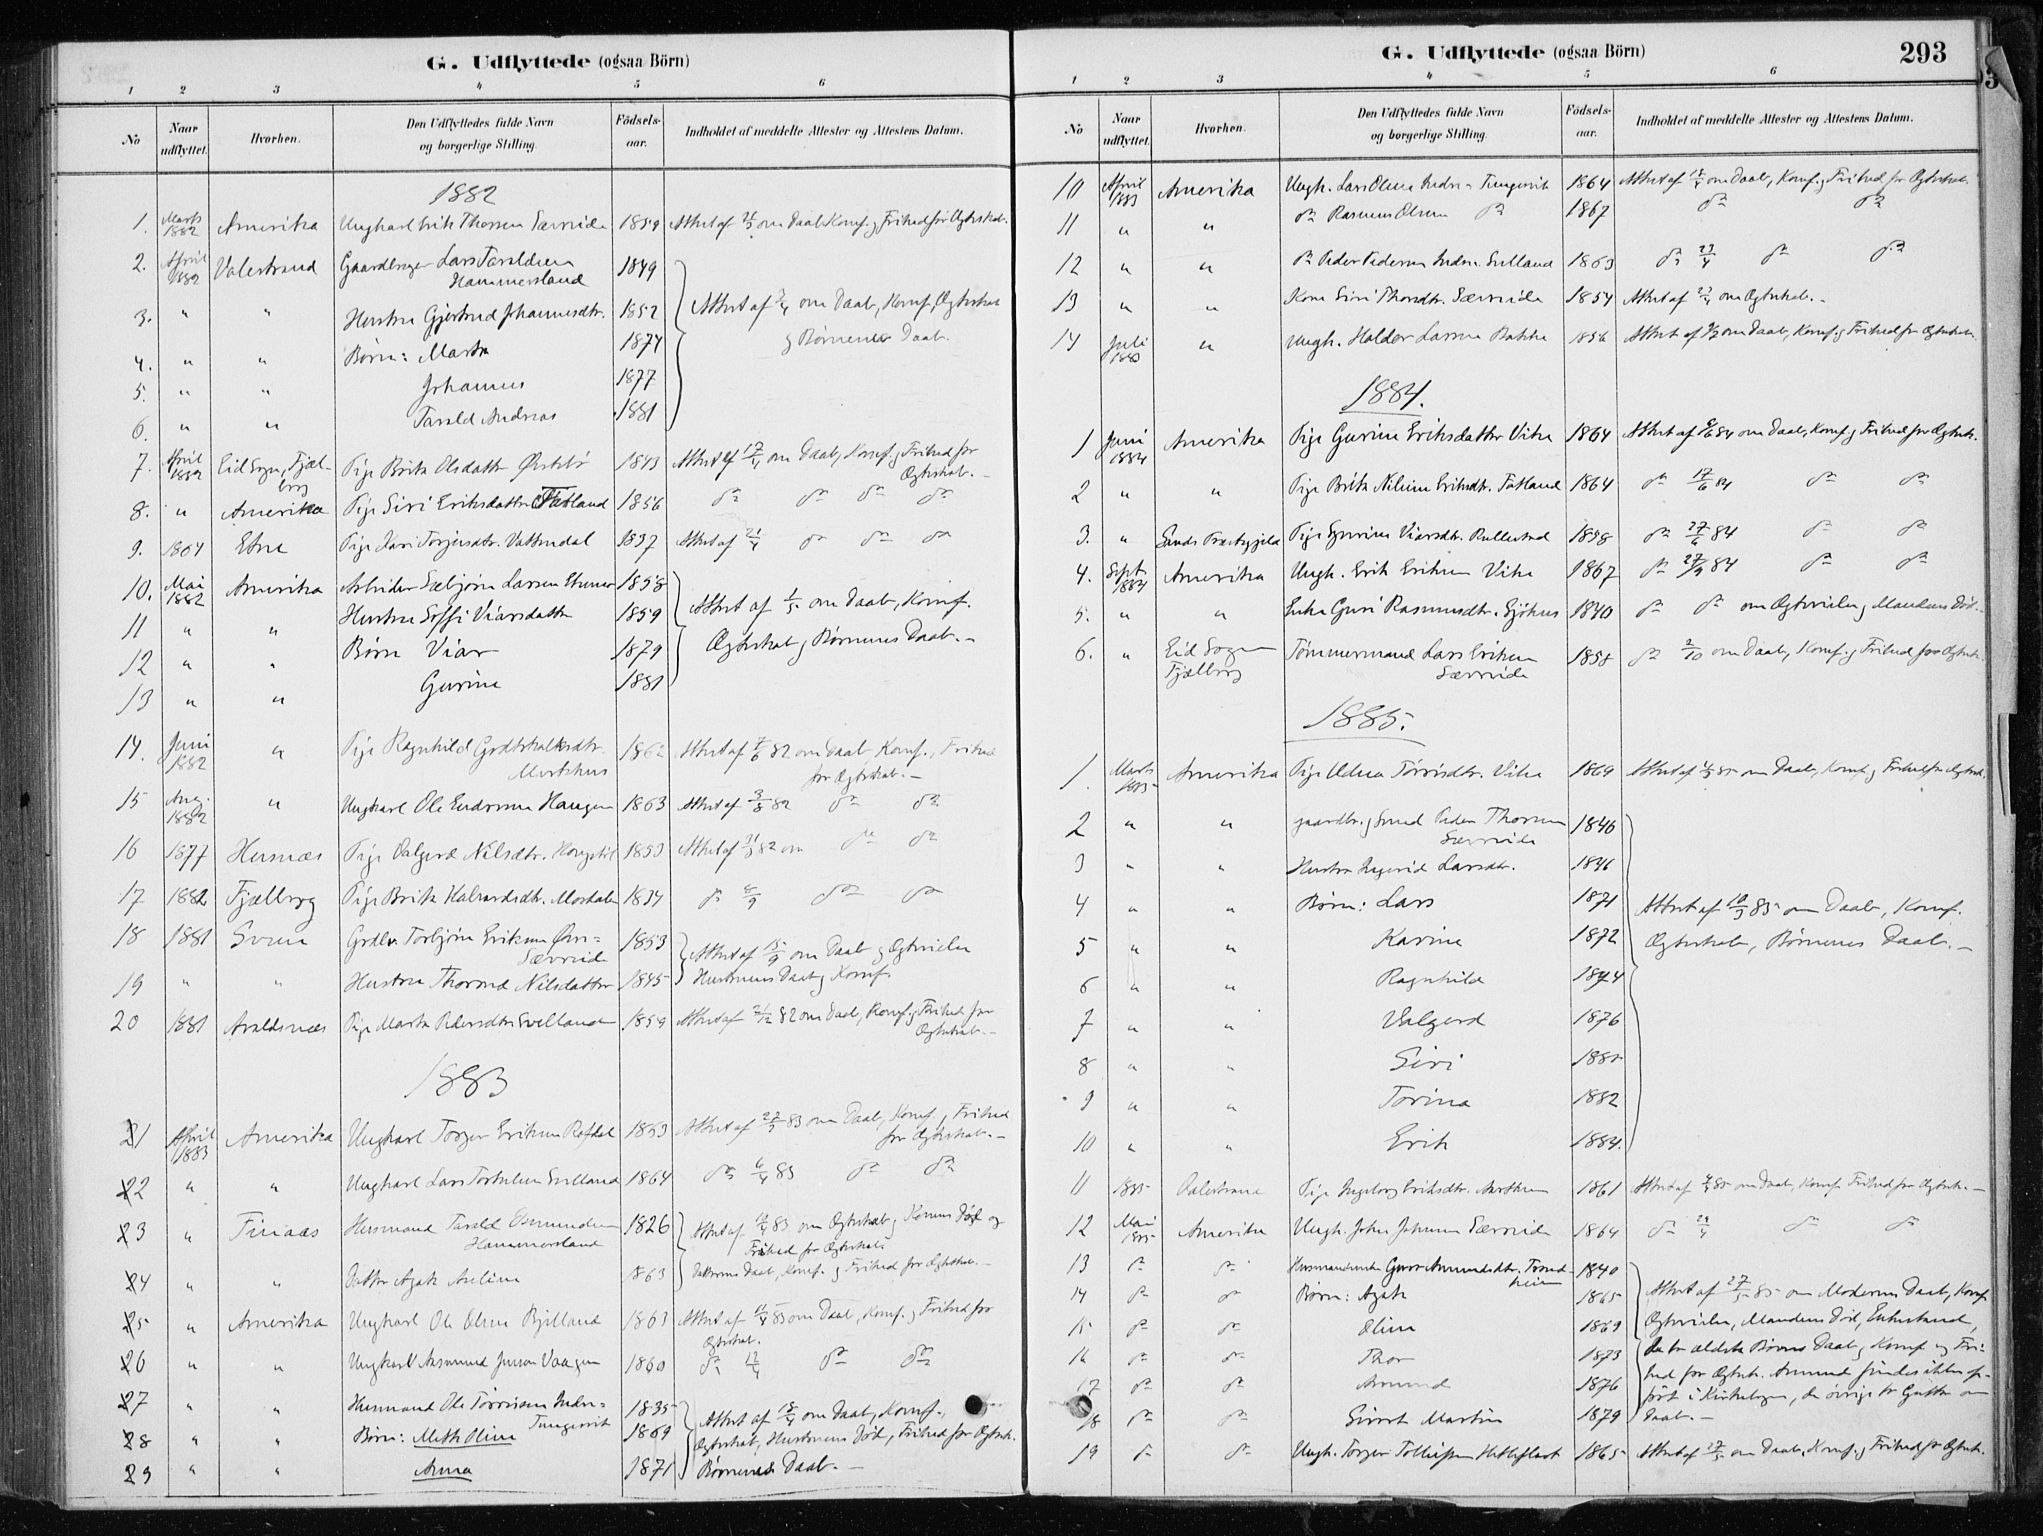 G. Udflyttede (ogsaa Börn)
1 2 3 4 5 6
No Naar udflyttet. Hvorhen. Den Udflyttedes fulde Navn og borgerlige Stilling. Födsels-aar. Indholdet af meddelte Attester og Attestens Datum.
1882
1. Marts 1882 Amerika Ungkarl Erik Thorsen Særvide 1859 Attest af om Daab Konf. g Frihed for Ægteskab.
2. April 1882 Valestrand Gaardbruger Lars Taraldsen 1849
Hammersland
3. " " Hustru Gjertrud Johannesdtr. 1852 Attest af om Daab, Konf, Ægteskab
4. " " Børn: Marta 1874 g Børnenes Daab.
5. " " Johannes 1877
6. " " Tarald Andreas 1881
7. April 1882 Eid Sogn, Fjæl- Pige Brita Olsdatter 1843 Attest af 17/4 om Daab, Konf. g Frihed for
berg Ægteskab. -
8. " Amerika Pige Siri Eriksdatter Fatland 1856 do do do do
9. Etne Pige Kari Torgersdtr. Vattendal 1837 Attest af 21/4 do do do
10. Mai 1882 Amerika Arbeider Sæbjørn Larsen 1858
11 " " Hustru Soffi Viarsdatter 1859 Attest af 1/5 om Daab, Konf.
12 " " Børn Viar 1879 Ægteskab g Børnenes Daab. -
13 " " Gurine 1881
14. Juni 1882 " Pige Ragnhild Godtskalksdtr. 1862 Attest af 82 om Daab, Konf., Frihed
for Ægteskab. -
15 Aug. 1882 " Ungkarl Ole Endresen Haugen 1863 Attest af 3/8 82 do do
16 1877 Husnæs Pige Valgerd Nilsdtr. 1853 Attest af 82 om do do
17 1882 Fjælberg Pige Brita Halvardsdtr. 1834 do 8/9 do do
18 1881 Sveen Grdbr. Torbjørn Eriksen Øvre= 1853 Attest af 15/9 om Daab g Ægtevielse
Særvide
19 " " Hustru Thorend Nilsdatter 1845 Hustruens Daab g Konf.
20 1881 Avaldsnæs Pige Marta Pedersdtr. Svelland 1859 Attest af 82 om Daab, Konf. g Frihed for
Ægteskab. -
1883
21 April 1883 Amerika Ungkarl Torger Eriksen Rafdal 1863 Attest af 27/3 83 om Daab, Konf. g Frihed
for Ægteskab. -
22 " " Ungkarl Lars Torkelsen Svelland 1864 do 6/4 83 do do
23 " Finaas Husmand Tarald Osmundsen 1826 Attest af 83 om Ægteskab g Konens Død og
Hammersland Frihed for Ægteskab.
24 " " Datter Agate Axeline 1863 Datterens Daab, Konf. g Frihed for Ægteskab. -
25 " Amerika Ungkarl Ole Olsen Bjelland 1863 Attest af 83 om Daab, Konf. g Frihed for
Ægteskab.
26 " " Ungkarl Aasmund Jensen Vaagen 1860 do do do
27 " " Husmand Ole Tørrisen Indre= 1835
Tungesvik
28 " " Børn: Mette Oline 1869 Attest af 18/4 om Daab, Konf.,
Ægteskab, Hustruens Død, Frihed for Ægtesk.
29 " " Anna 1871 Børnenes Daab. -
G. Udflyttede (ogsaa Börn) 293
1 2 3 4 5 6
No Naar udflyttet. Hvorhen. Den Udflyttedes fulde Navn og borgerlige Stilling. Födsels-aar. Indholdet af meddelte Attester og Attestens Datum.
10 April 1883 Amerika Ungk. Lars Olsen Indre Tungesvik 1864 Attest af 18/4 om Daab, Konf. g Frihed for Ægteskab.
11 " " do Rasmus Olsen do 1867 do do
12 " " do Peder Pedersen Indre Svelland 1863 do 23/4 do do
13 " " Kone Siri Thorsdtr. Særvide 1854 Attest af 23/4 om Ægteskab. -
14 Juli 1883 " Ungk. Haldor Larsen Bakke 1856 Attest af om Daab, Konf. g Frihed for Ægteskab.
1884.
1 Juni 1884 Amerika Pige Gurine Eriksdatter Vike 1864 Attest af 84 om Daab, Konf. g Frihed for Ægtesk.
2 " " Pige Brita Nilsine Eriksdtr. Fatland 1864 do 17/6 84 do do
3. " Sands Præstegjeld Pige Gurine Viarsdtr. Rullestad 1858 do 27/6 84 do do
4. Sept. 1884 Amerika Ungk. Erik Eriksen Vike 1867 do 27/9 84 do do
5. " " Enke Guri Rasmusdtr. Sjøhus 1840 do do om Ægtevielse g Mandens Død.
6. " Eid Sogn Tømmermand Lars Eriksen 1858 do 2/10 om Daab, Konf. g Frihed for Ægtesk.
Fjælberg Særvide
1885.
1. Marts 1885 Amerika Pige Tørrisdtr. Vike 1869 Attest af 85 om Daab, Konf. g Frihed for Ægtesk.
2 " " Gaardbr. g Smed Peder Thorsen 1846
Særvide
3 " " Hustru Ingerid Larsdtr. 1846
4 " " Børn: Lars 1871 Attest af 10/3 85 om Daab, Konf.
5 " " Karine 1872 Ægteskab, Børnenes Daab. -
6 " " Ragnhild 1874
7 " " Valgerd 1876
8 " " Siri 188
9 " " Torina 1882
10 " " Erik 1884.
11 1885 Valestrand Pige Ingeborg Eriksdtr. 1861 Attest af 85 om Daab, Konf. Frihed for Ægtesk. -
12 Mai 1885 Amerika Ungk. John Johnsen Særvide 1864 do do do
13 do do Husmandsenke Guro Amundsdtr. Trond- 1840
heim
14 do do Børn: Agate 1865 Attest af 27/5 85 om Moderens Daab, Konf.
15 do do Oline 1869 Ægtevielse, Mandens Død, Enkestand,
16 do do Thor 1873 de to ældste Børns Daab g Konf. og Fri-
17 do do Amund 1876 hed for Ægtesk. Amund findes ikke op-
ført i Kirkebogen, de øvrige to Gutter om
18 do do Sivert Martin 1879 Daab. -
19 do do Ungk. Torger Tollefsen 1865 Attest af 27/5 om Daab, Konf. g Frihed for Ægtesk.